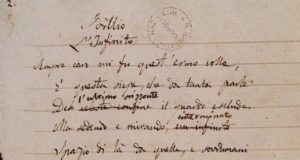 2.
Idillio
L'Infinito
Sempre caro mi fu quest'ermo colle,
E questa siepe, che da tanta parte
l'ultimo orizzonte
Del celeste confine il guardo esclude.
interminato
Ma sedendo e mirando, un infinito
Spazio di là da quella, e sovrumani